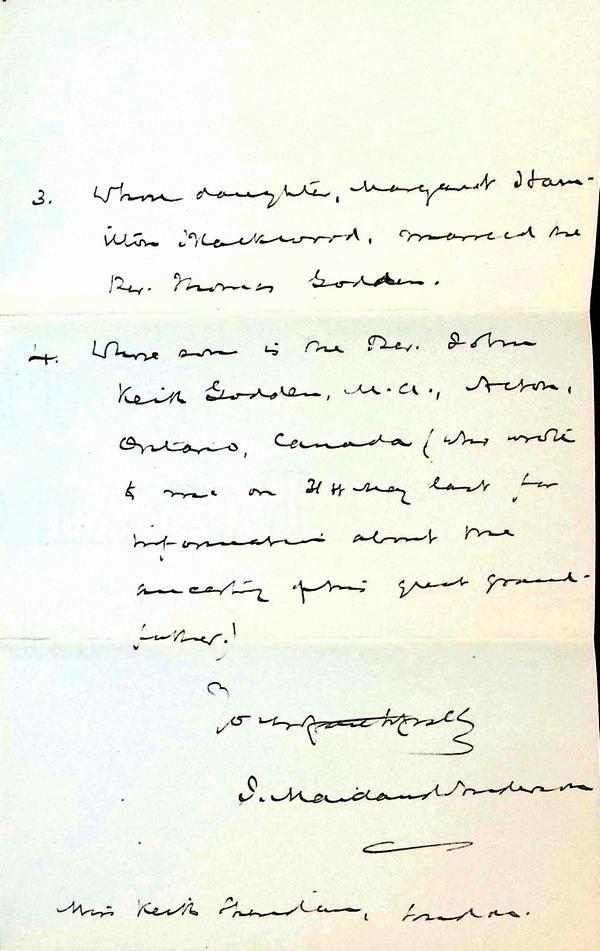 3. Whose daughter, Margaret Ham-
ilton Mackwood, married the
Rev. Thomas Godden.
4. Whose son is the Rev. John
Keith Godden, M.A., Acton,
Ontario, Canada (who wrote
to me on May last for
information about the
ancestry of his great grand-
father.)
Yours faithfully
J. Maitland Anderson
Miss Keith London.